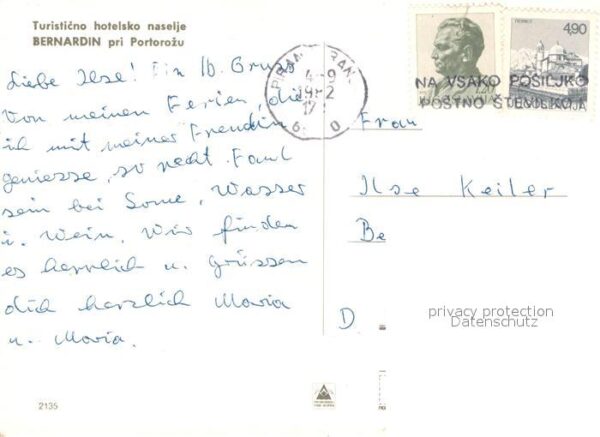 Turistično hotelsko naselje
BERNARDIN pri Portorožu
Liebe Ilse! Ein lb. Gruss
von meinen Ferien, die
ich mit meiner Freundin
geniesse, so recht Faul
sein bei Sonne, Wasser
u. Wein. Wir finden
es herrlich u. grüssen
dich herzlich Maria
u. Maria.
4-9
1982
17
6
4,90
NA VSAKO POŠILJKO
POŠTNO ŠTEVILKO
Frau
Ilse Keiler
Be
D
privacy protection
Datenschutz
2135